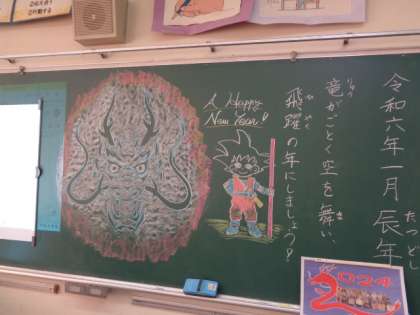 令和六年一月 辰年
たつどし
竜がごとく空を舞い、
りゅう
ま
飛躍の年にしましょう?
ひやく
A Happy
New Year!
2024